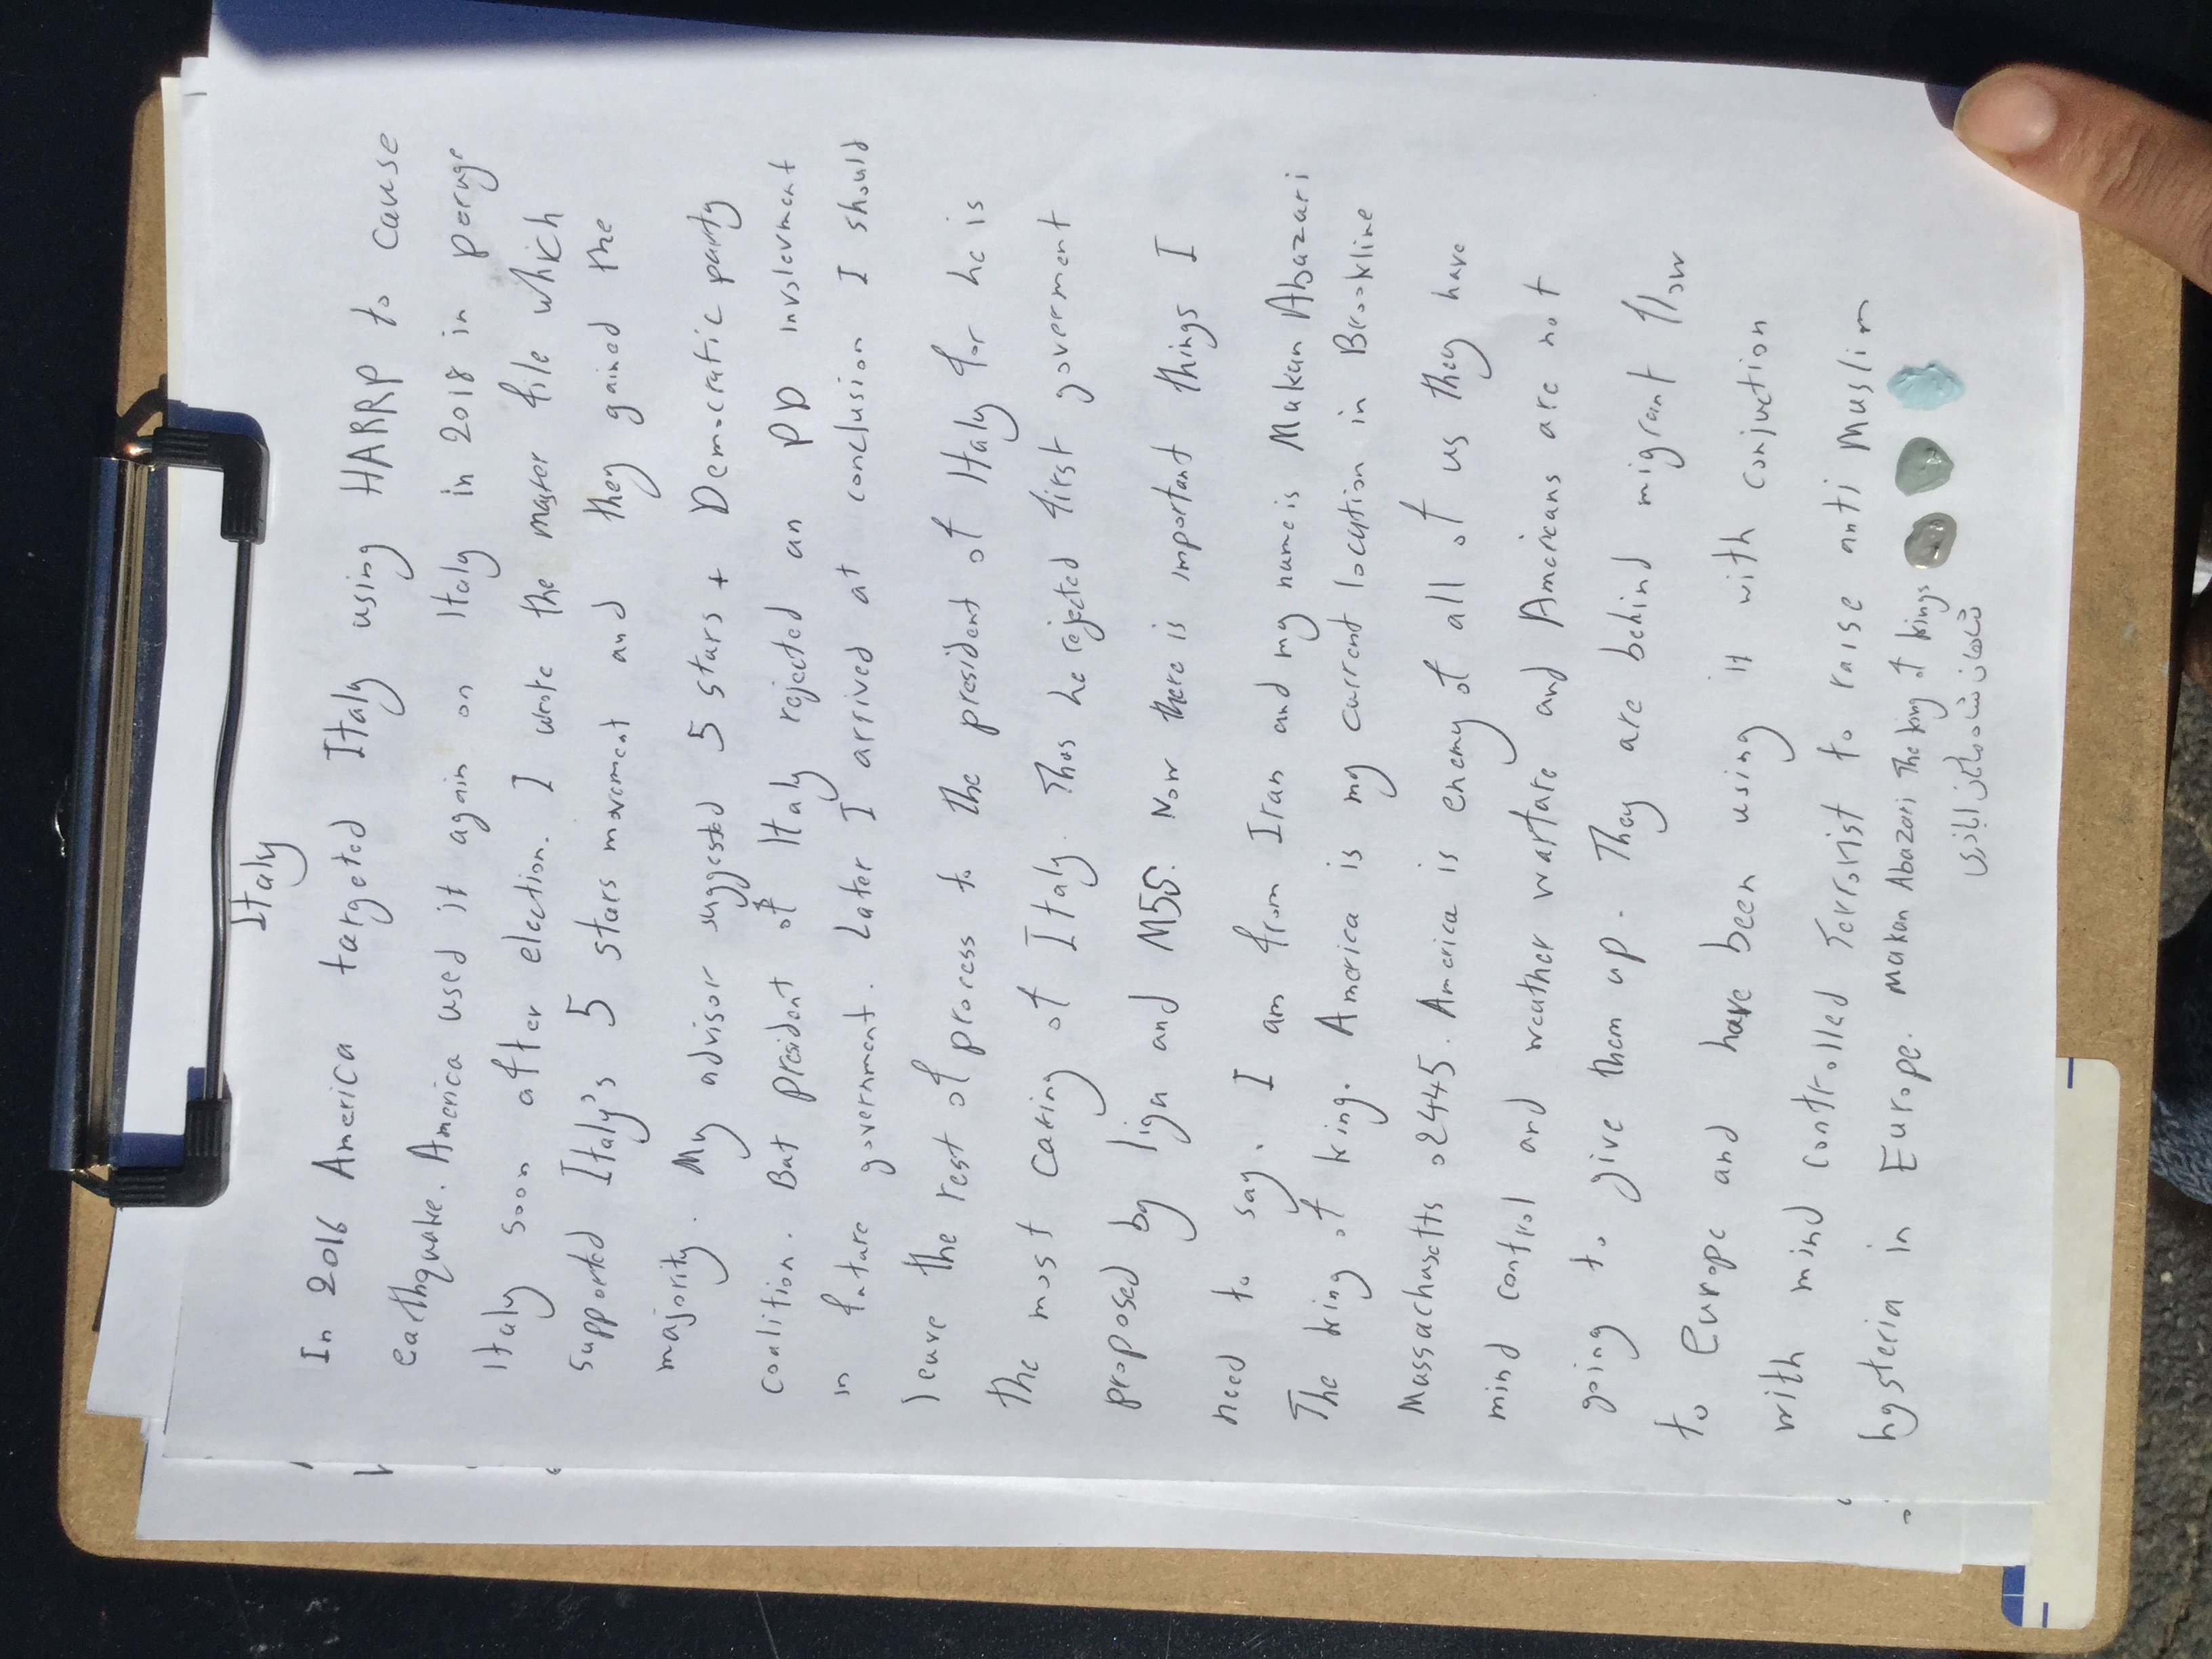 Italy
In 2016 America targeted Italy using HARRP to cause
earthquake. America used it again on Italy in 2018 in perugr
Italy soon after election. I wrote the master file which
supported Italy's 5 stars movement and they gained the
majority. My advisor suggested 5 stars + Democratic party
coalition. But president of Italy rejected an PD involevment
in future government. Later I arrived at conclusion I should
leave the rest of process to the president of Italy for he is
the most caring of Italy. Thus he rejected first goverment
proposed by liga and M5S. Now there is important things I
need to say. I am from Iran and my name is Makan Abazari
The king of king. America is my current location in Brookline
Massachusetts 02445. America is enemy of all of us they have
mind control and weather warfare and Americans are not
going to give them up. They are behind migrant flow
to Europe and have been using it with conjuction
with mind controlled Terrorist to raise anti Muslim
hysteria in Europe. Makan Abazari The king of kings
شاهان شاه ماکان اباذری